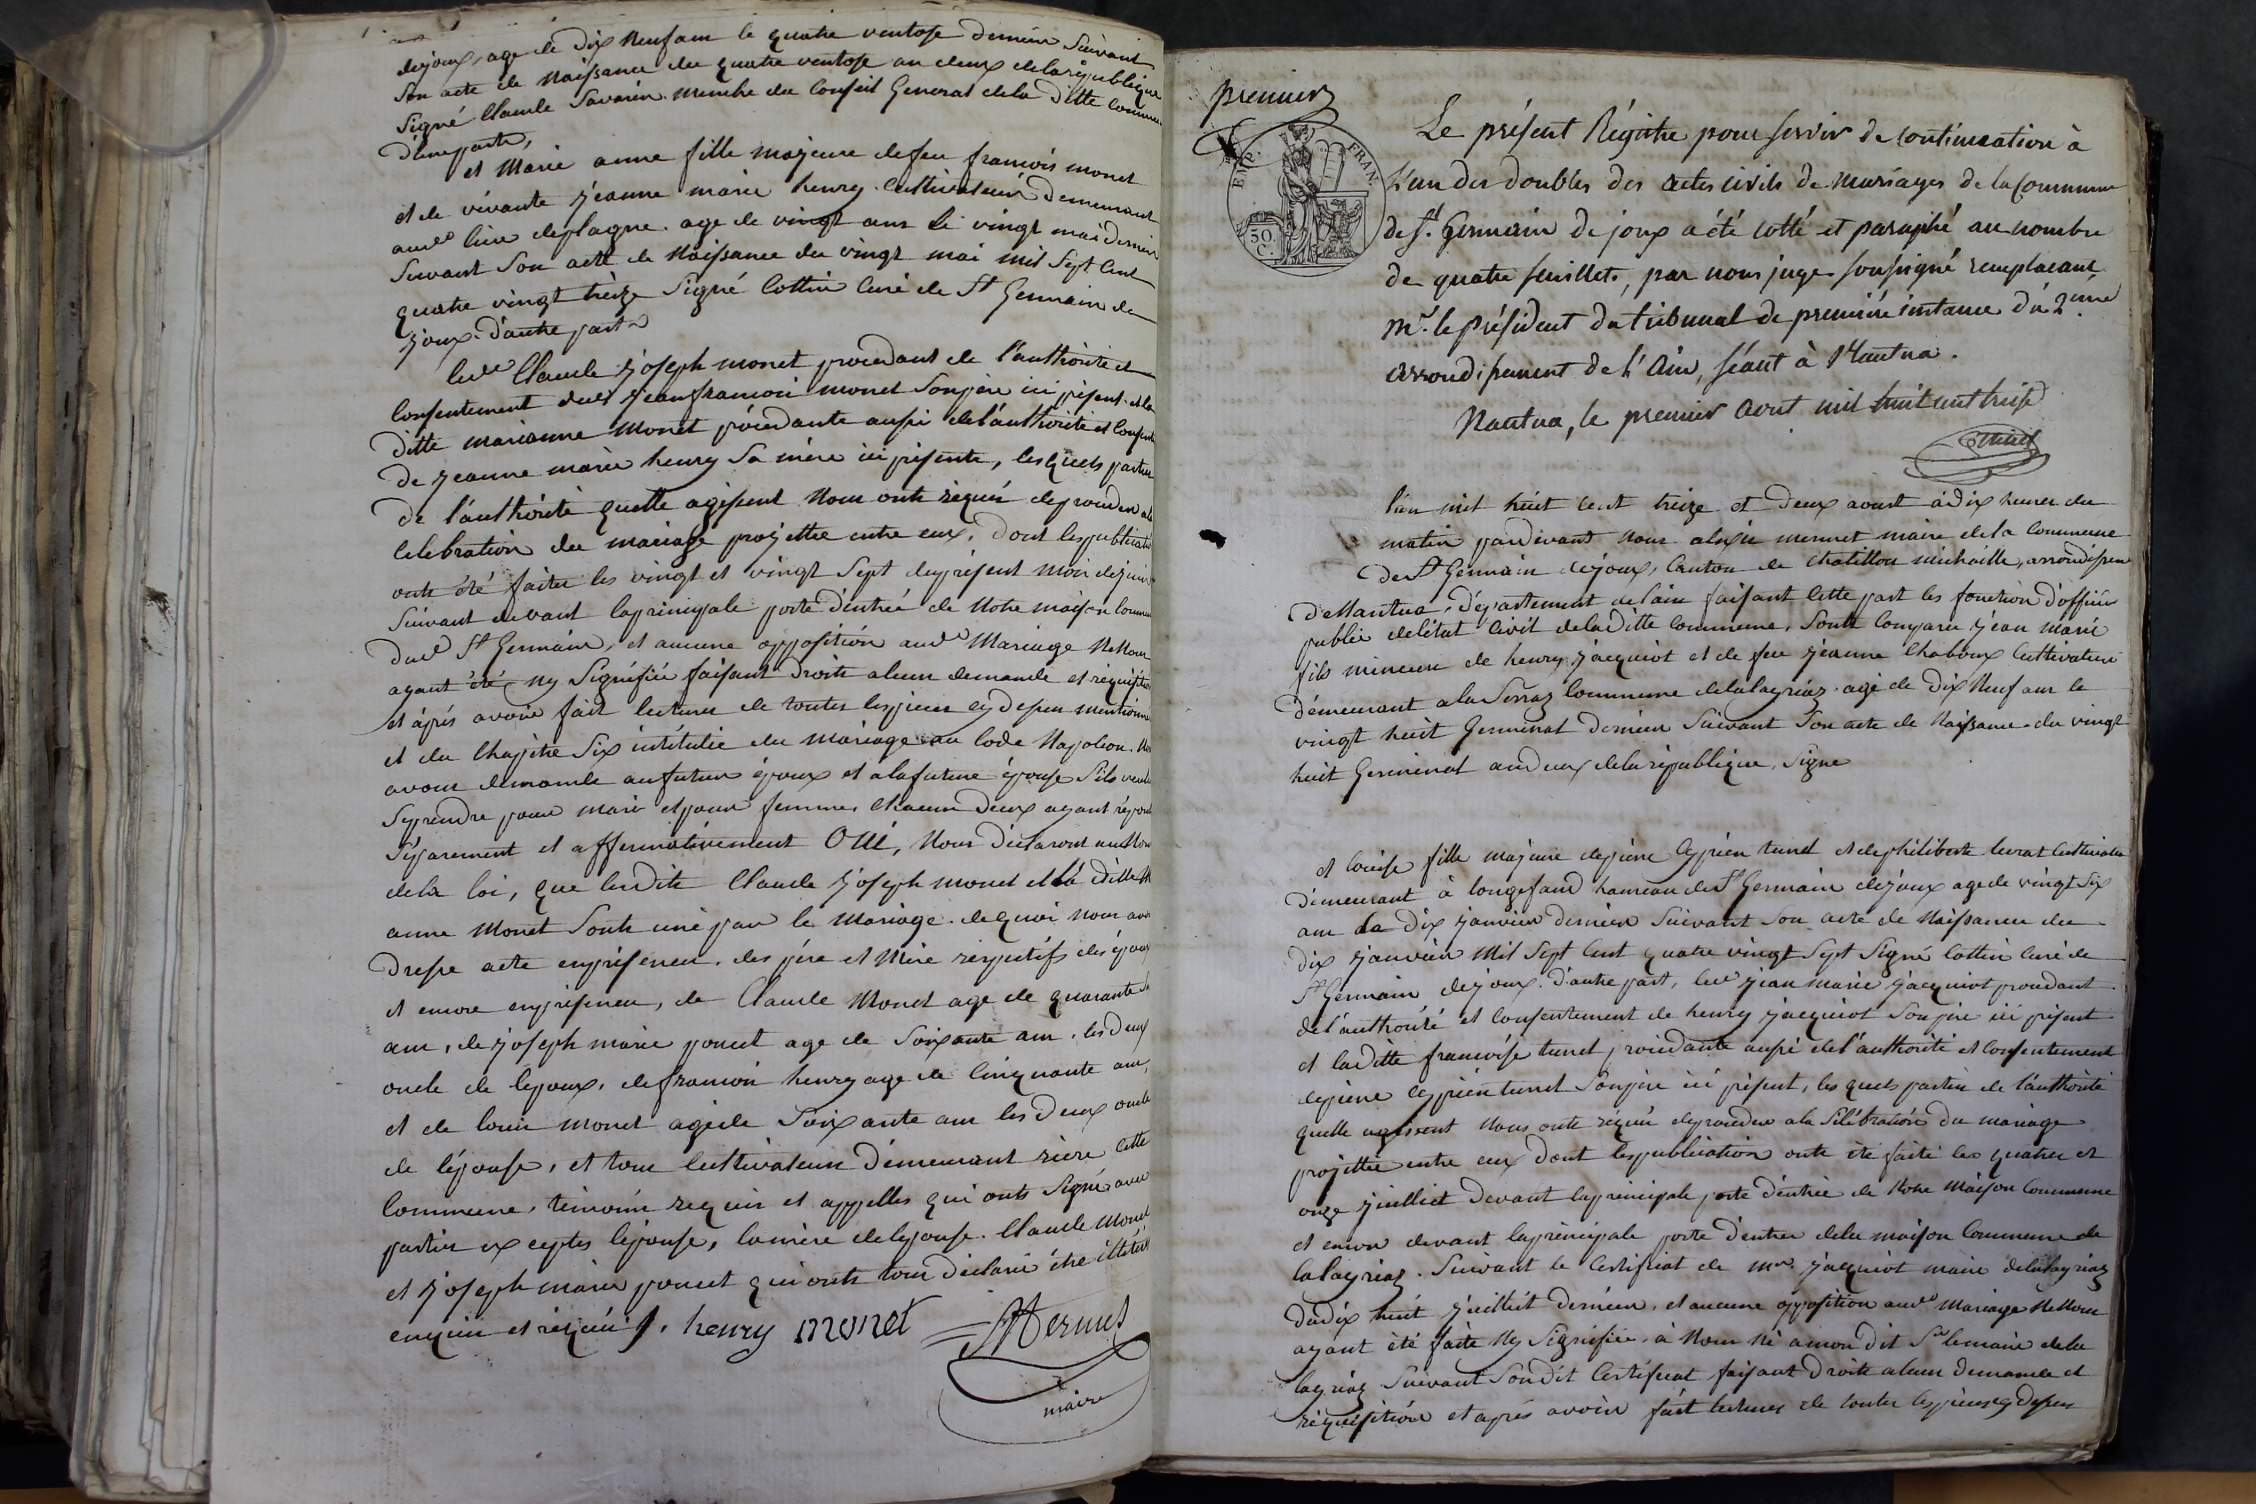 dejoux, age de Dix Neuf ans le quatre ventose dernier Suivant
Son acte de Naissance du quatre ventose an deux de la république
Signé Claude Savarin membre du Conseil General dela Ditte commune
D'une part,
et Marie anne fille majeure defeu francois monet
et de vivante jeanne marie henry cultivateur Demeurant
aud.t lieu deplagne age de vingt ans le vingt mai Dernier
Suivant Son acte de Naissance du vingt mai mil Sept Cent
quatre vingt treize Signé Cottin Curé de St Germain de
joux. D'autre part
Led.t Claude joseph monet procedant de l'authorité et
Consentement de jean francois monet Son père ici présent. et la
Ditte marianne monet procedante aussi de l'authorité et Consent
De jeanne marie henry Sa mère ici présente, les quels parties
De l'authorité quelle agissent Nous onts requis de proceder a la
Celebration du mariage projettée entre eux, Dont les publication
onts été faites les vingt et vingt Sept du présent mois de juin
Suivant devant la principale porte d'entrée de Notre maison Commune
Dud.t St Germain, et aucune opposition aud.t Mariage Ne Nous
ayant été Ny Signifiée faisant Droits a leur demande et requisition
et après avoir fait lectures de toutes les pieces cy Dessus mentionnée
et du Chapitre Six intitulée du Mariage au Code Napoleon. Nous
avons demande au futur époux et a la future épouse S'ils veulent
Se prendre pour mari et pour femme, chacun Deux ayant répondu
Séparement et affermativement OUI, Nous Déclarons au Nom
de la loi, que lesdits Claude joseph monet et la ditte M
anne Monet Sonts uni par le Mariage. de quoi nous avons
Dresse acte en présence. des père et Mère respectifs des époux
et encore en présence, de Claude Monet age de quarante
ans, de joseph marie poncet age de Soixante ans, les Deux
oncle de l'epoux, de francois henry age de Cinquante ans,
et de louis monet agé de Soixante ans les Deux oncle
de l'épouse, et tous Cultivateurs Demeurant rière cette
Commune, témoins requis et appelles qui onts Signé avec
parties exceptes l'épouse, la mère de l'epouse. Claude Monet
et joseph marie poncet qui onts tous Déclaré être illitérés
enquis et requis f. henry monet Mermet
maire
premier
EMP. FRAN.
50 C.
Le présent Régistre pour servir de continuation à
l'un des doubles des actes civils de mariages de la Commune
de St. Germain de joux a été cotté et paraphé au nombre
de quatre feuillets, par nous juge soussigné remplacant
Mr. le Président du tribunal de première instance du 2eme
arrondissement de l'Ain, séant à Nantua.
Nantua, le premier aout mil huit cent treize
l'an mil huit cent treize et Deux aoust à dix heures du
matin pardevant Nous alexis mermet maire de la Commune
De St Germain dejoux, Canton de Chatillon michaille, arrondissement
De Nantua, Département de l'ain faisant Cette part les fonction D'officier
public de l'état Civil de la Ditte Commune, Sonts Comparu jean marie
fils mineure de henry jacquiot et de feu jeanne Chaboux Cultivateur
Démeurant a la Serraz Commune de lalayriaz. agé de Dix Neuf ans le
vingt huit Germinal Dernier Suivant Son acte de Naissance du vingt
huit Germinal an deux de la république, Signe
et louise fille majeure de pierre Cyprien tunet et de philiberte levrat Cultivateur
Demeurant à longefand hameau de St Germain de joux age de vingt Six
ans le Dix janvier Dernier Suivant Son acte de Naissance du
Dix janvier Mil Sept Cent quatre vingt Sept Signé Cottin Curé de
St Germain dejoux. D'autre part, led.t jean marie jacquiot procedant
de l'authorité et Consentement de henry jacquiot Son père ici présent
et la ditte francoise tunet, procedante aussi de l'authorité et Consentement
de pierre Cyprien tunet Son père ici présent, les quels parties de l'authorité
quelle agissent Nous onts requis de proceder a la Célébration du mariage
projettée entre eux dont les publication onts été faite les quatre et
onze juilliet Devant la principale porte d'entrée de Notre Maison Commune
et encore devant la principale porte d'entrée dela maison Commune de
lalayriaz. Suivant le Certificat de Mr. jacquiot maire de lalayriaz
du dix huit juilliet Dernier, et aucune opposition aud.t Mariage Ne Nous
ayant été faite Ny Signifiée, à Nous Ni a mon dit Sr le maire de la
layriaz Suivant Son dit Certificat faisant Droits a leur Demande et
réquisition et après avoir fait lectures de toutes les pièces cy dessus